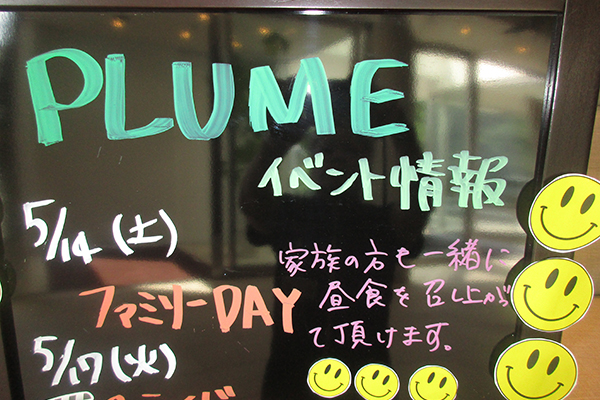 PLUME
イベント情報
5/14(土)
ファミリーDAY
家族の方も一緒に
昼食を召し上が
て頂けます。
5/17(火)